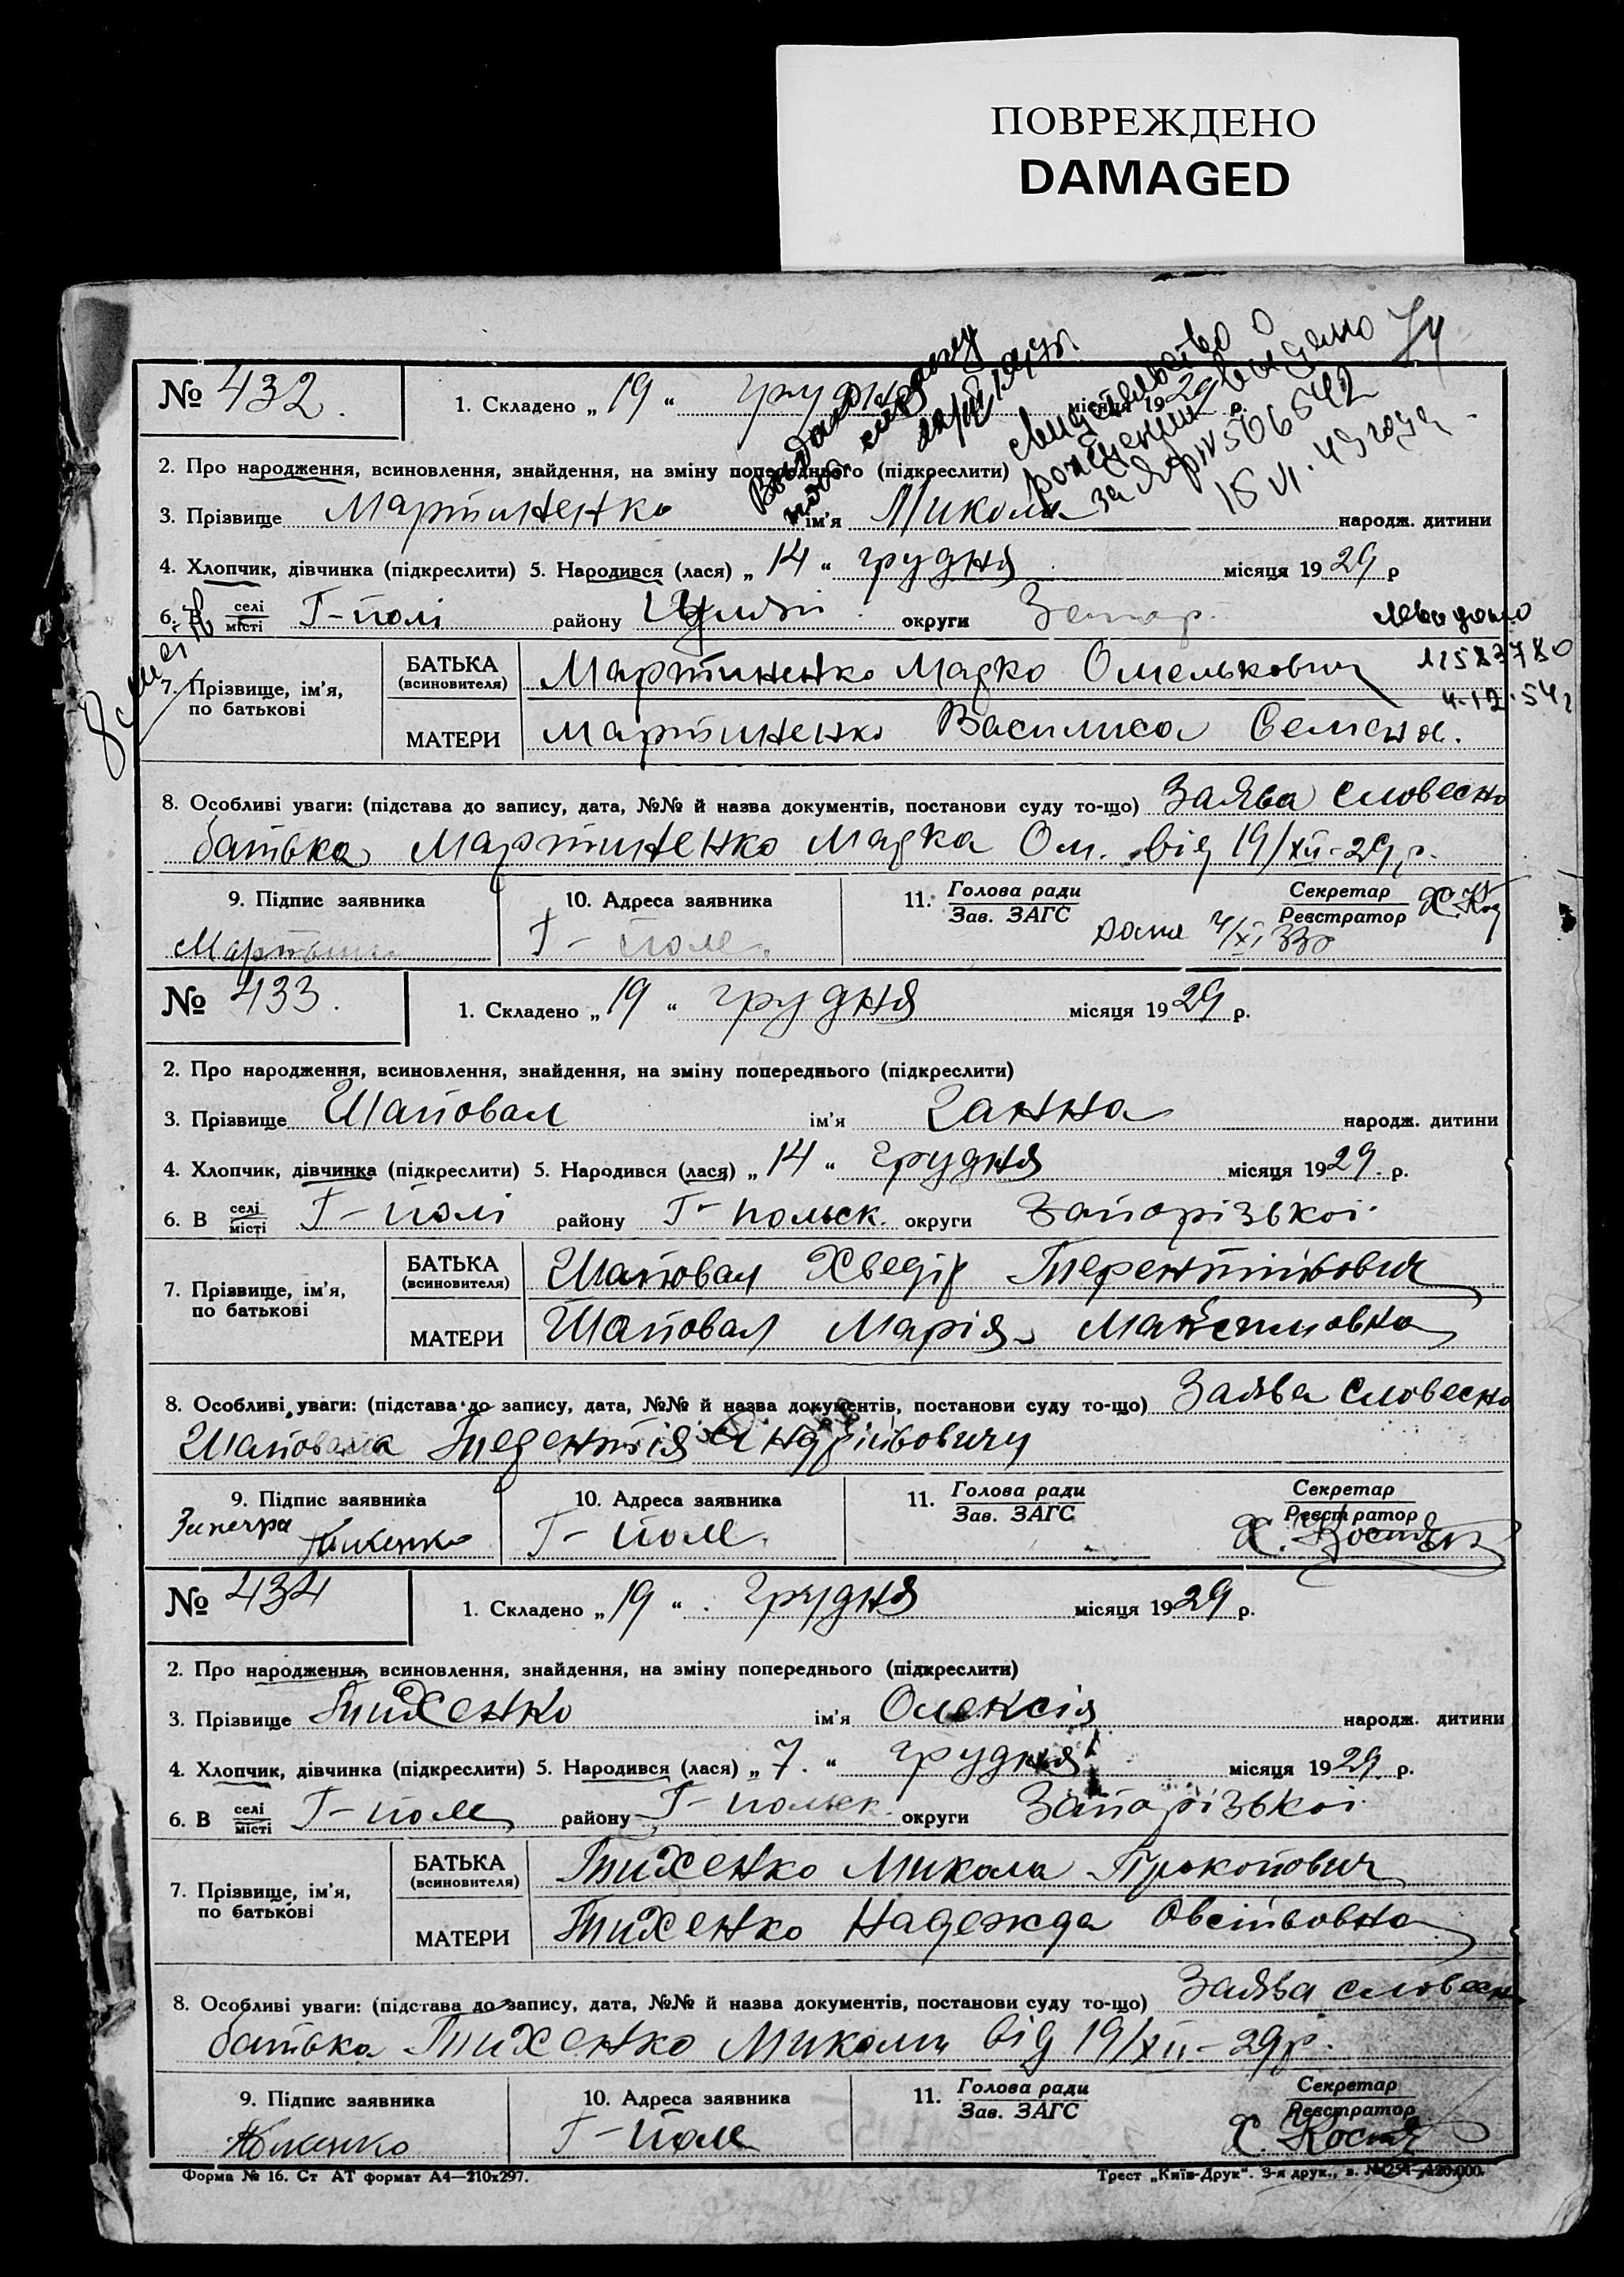 ПОВРЕЖДЕНО
DAMAGED
№ 432. 1. Складено „ 19 “ грудня місяця 1929 р.
свидетельство о
рождении выдано
за ЯР № 506542
18 VI. 49 года
2. Про народження, всиновлення, знайдення, на зміну попереднього (підкреслити)
3. Прізвище Мартиненко ім'я Микола народж. дитини
4. Хлопчик, дівчинка (підкреслити) 5. Народився (лася) „ 14 “ грудня місяця 1929 р
6. В селі місті Г-полі району округи Запор.
11583780
4.12.54
7. Прізвище, ім'я, по батькові
БАТЬКА (всиновителя) Мартиненко Марко Омелькович
МАТЕРИ Мартиненко Василиса Семен.
8. Особливі уваги: (підстава до запису, дата, №№ й назва документів, постанови суду то-що) Заява словесно
батька Мартиненко Марка Ом. від 19/XII-29 р.
9. Підпис заявника 10. Адреса заявника 11. Голова ради Зав. ЗАГС Секретар Реєстратор
Г-поле.
№ 433. 1. Складено „ 19 “ грудня місяця 1929 р.
2. Про народження, всиновлення, знайдення, на зміну попереднього (підкреслити)
3. Прізвище Шаповал ім'я Ганна народж. дитини
4. Хлопчик, дівчинка (підкреслити) 5. Народився (лася) „ 14 “ грудня місяця 1929 р.
6. В селі місті Г-полі району Г-польск. округи Запорізької
7. Прізвище, ім'я, по батькові
БАТЬКА (всиновителя) Шаповал Хведір Терентійович
МАТЕРИ Шаповал Марія Максимовна
8. Особливі уваги: (підстава до запису, дата, №№ й назва документів, постанови суду то-що) Заява словесно
Шаповала Терентія Андрійовичу
9. Підпис заявника 10. Адреса заявника 11. Голова ради Зав. ЗАГС Секретар Реєстратор
Г-поле.
№ 434 1. Складено „ 19 “ грудня місяця 1929 р.
2. Про народження, всиновлення, знайдення, на зміну попереднього (підкреслити)
3. Прізвище Тихенко ім'я Олексія народж. дитини
4. Хлопчик, дівчинка (підкреслити) 5. Народився (лася) „ 7. “ грудня місяця 1929 р.
6. В селі місті Г-поле району Г-польск. округи Запорізької
7. Прізвище, ім'я, по батькові
БАТЬКА (всиновителя) Тихенко Микола Прокопович
МАТЕРИ Тихенко Надежда Овсіївовна
8. Особливі уваги: (підстава до запису, дата, №№ й назва документів, постанови суду то-що) Заява словесн
батька Тихенко Миколи від 19/XII-29 р.
9. Підпис заявника 10. Адреса заявника 11. Голова ради Зав. ЗАГС Секретар Реєстратор
Г-поле
Форма № 16. Ст АТ формат А4—210х297. Трест „Київ-Друк“. 3-я друк., з.